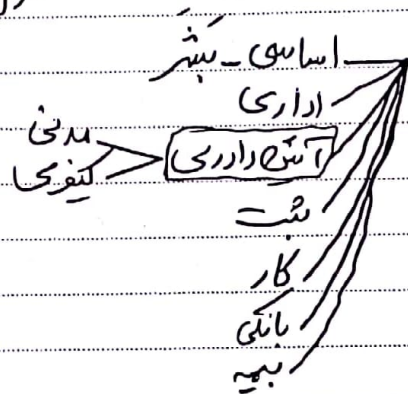 اساسی - بشر
اداری
آئین دادرسی
مدنی
کیفری
ثبت
کار
بانکی
بیمه